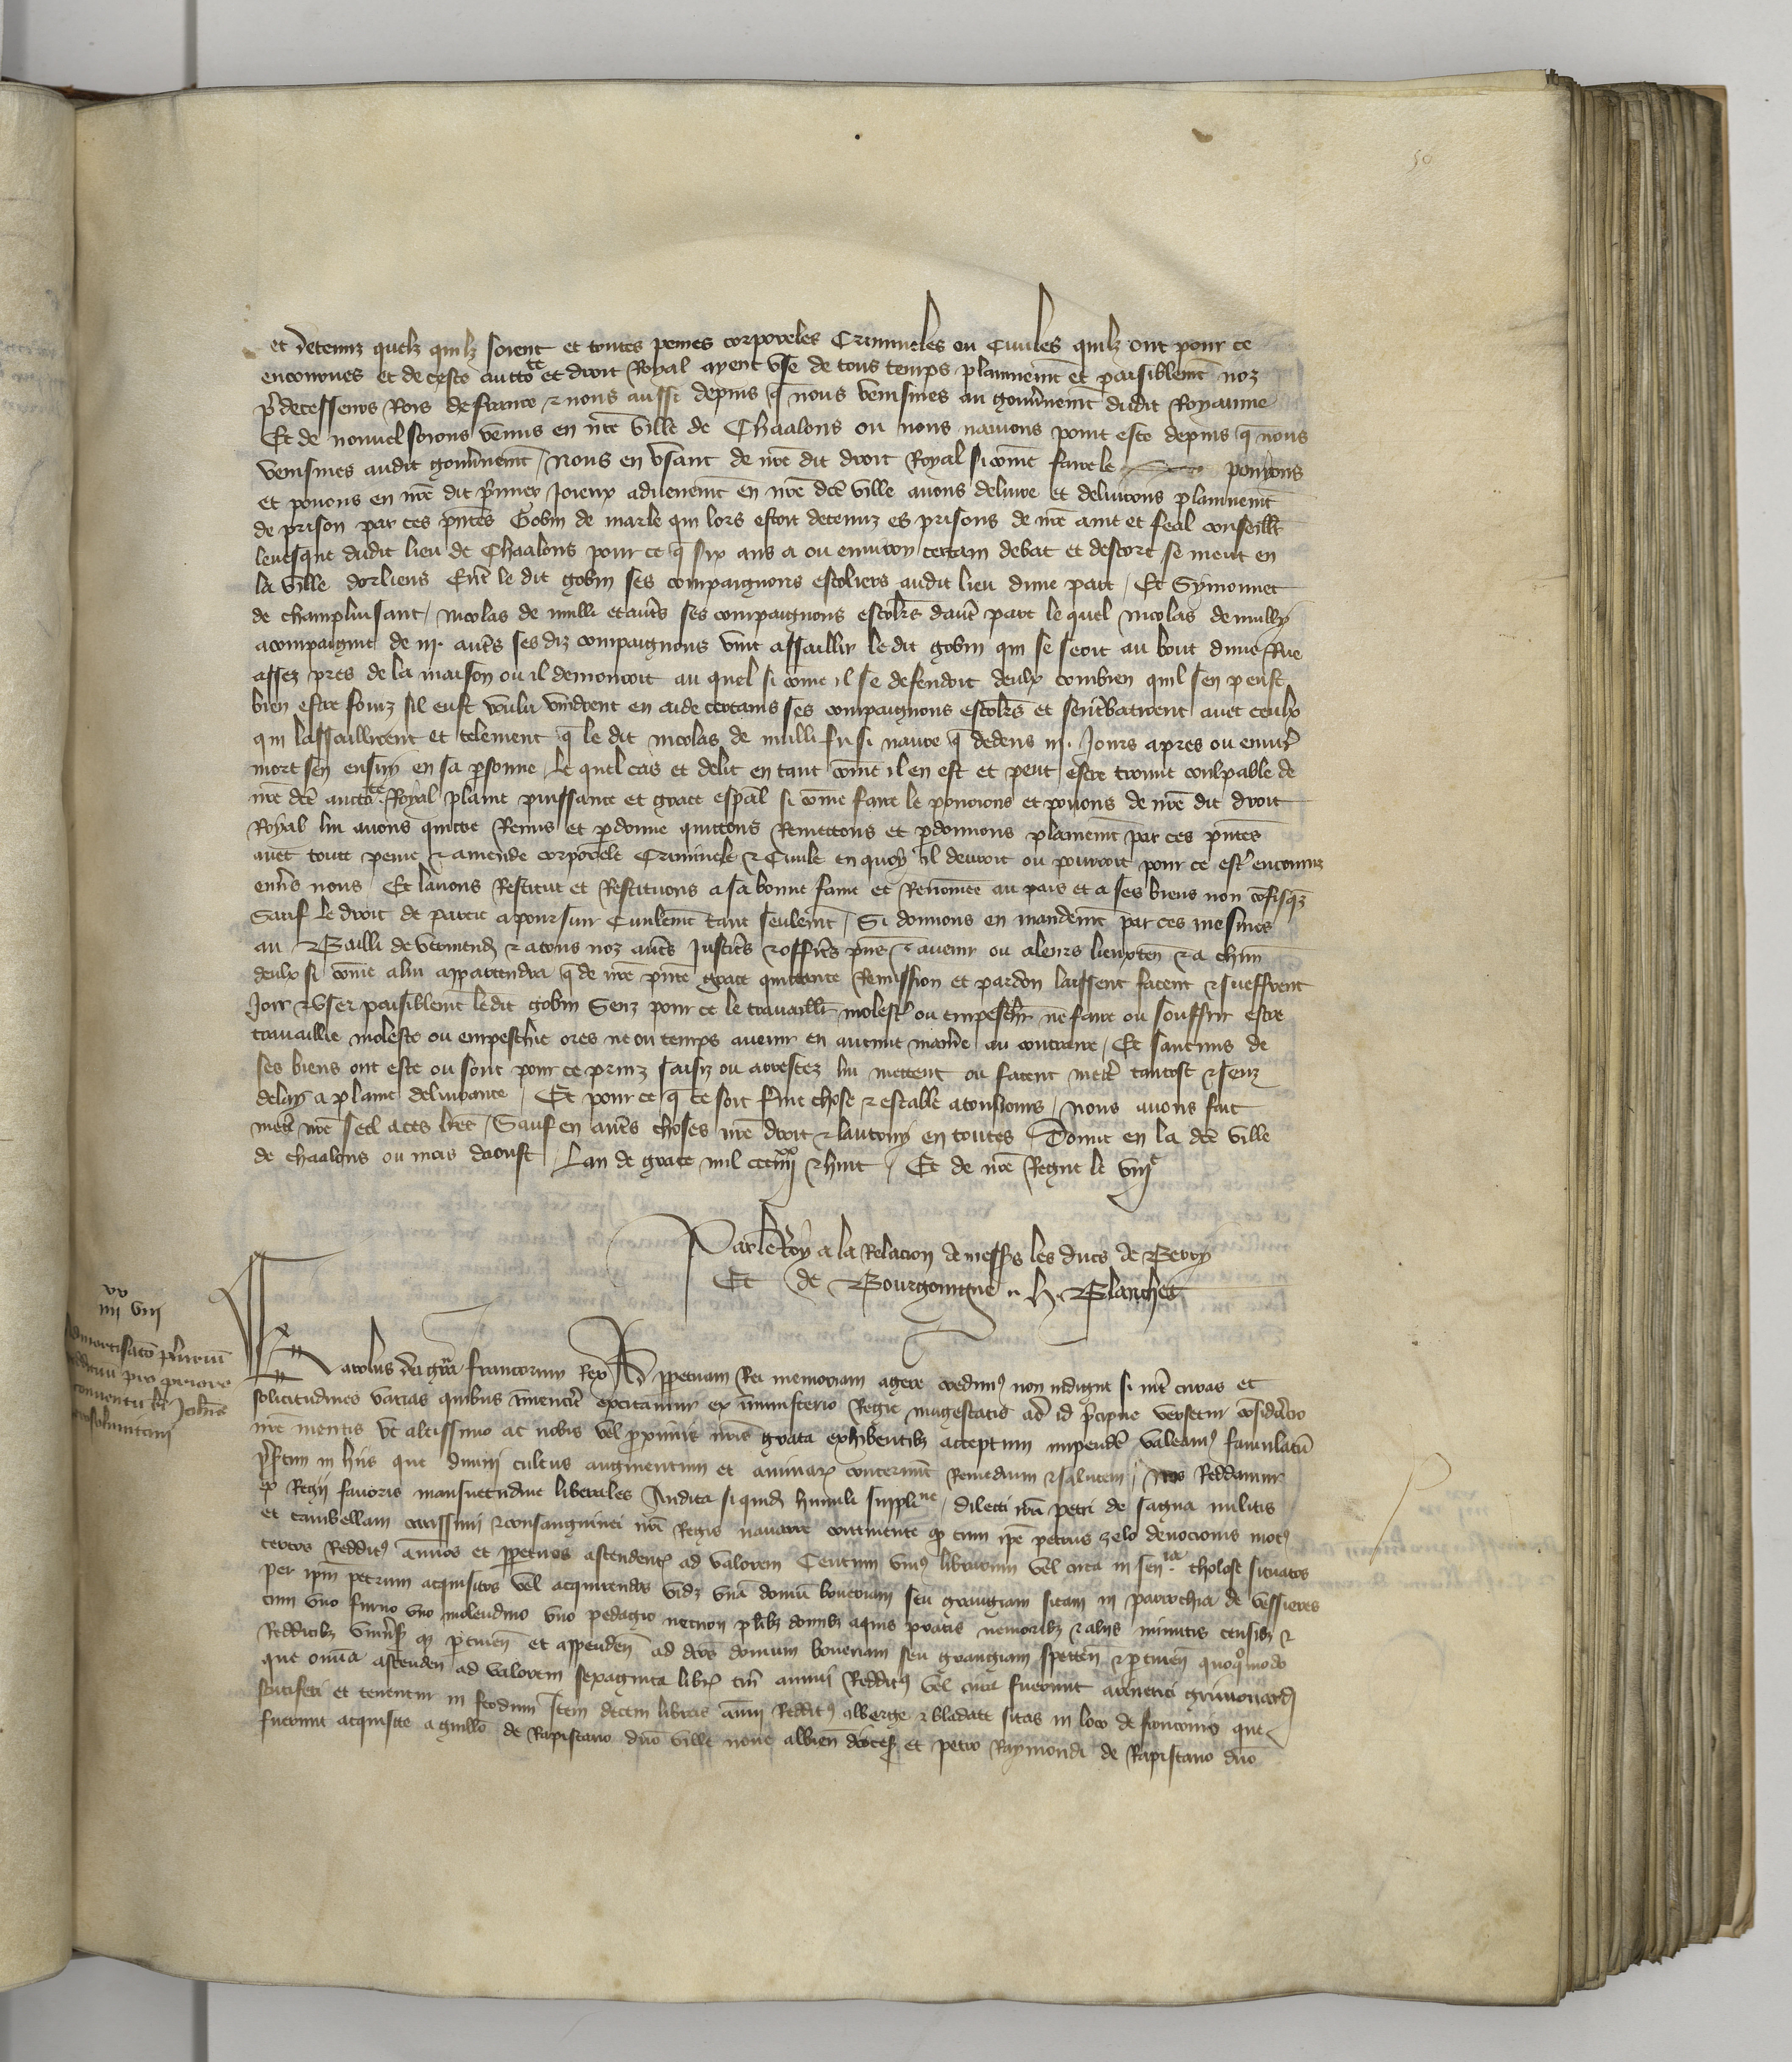 50
et detenuz quelz quilz soient et toutes peines corporeles Crimineles ou Ciuiles quilz ont pour ce
encourues et de ceste auctorite et droit Royal ayent vse de tous temps plainnemt et paisiblemt noz
predecesseurs Rois de France & nous aussi depuis q nous venismes au gouuernemt dudit Royaume
Et de nouuel soions venus en nre ville de Chaalons ou nous nauions point este depuis q nous
venismes audit gouuernemt / Nous en vsant de nre dit droit Royal si comme faire le pouyons
et pouons en nre dit premier Joieux aduenemt en nre dce ville auons deliure et deliurons plainnemt
de prison par ces pntes Gobin de marle qui lors estoit detenuz es prisons de nre ame et feal conseillr
leuesque dudit lieu de Chaalons pour ce q six ans a ou enuiron certain debat et descort se meut en
la ville dorliens Entre le dit gobin ses compaignons escoliers audit lieu dune part / Et Symonnet
de champluisant / Nicolas de milli et autres ses compaignons escoliers dautre part le quel Nicolas de milly
acompaignie de iij. autres ses diz compaignons vint assaillir le dit gobin qui se seoit au bout dune Rue
assez pres de la maison ou il demouroit au quel si come il se defendoit deulx combien quil sen peust
bien estre fouiz sil eust voulu vindrent en aide certains ses compaignons escoliers et sentrebatirent auec ceulx
qui lassaillirent et telement q le dit Nicolas de milli fu si naure q dedens iij. Jours apres ou enuiron
mort sen ensuy en sa personne / Le quel cas et delit en tant come il en est et peut estre trouue coulpable de
nre dce auctorite Royal plaine puissance et grace espal si come faire le pouuions et pouons de nre dit droit
Royal lui auons quicte Remis et pardonne quictons Remettons et pardonnons plainemt par ces pntes
auec toute peine & amende corporele Criminele & Ciuile en quoy il deuroit ou pourroit pour ce estre encouruz
enuers nous / Et lauons Restitue et Restituons a sa bonne fame et Renomee au pais et a ses biens non cofisqz
Sauf le droit de partie a poursuir Ciuilemt tant seulemt / Si donnons en mandemt par ces mesmes
au Bailli de vermend & a tous noz autres Justiciers & officiers pns & auenir ou a leurs lieuxten & a chun
deulx si come a lui appartendra q de nre pnte grace quictance Remission et pardon laissent facent & sueffrent
Joir & vser paisiblemt ledit gobin Senz pour ce le trauaillr molestr ou empeschr ne faire ou souffrir estre
trauaillie moleste ou empeschie ores ne ou temps auenir en aucune maniere au contraire / Et saucuns de
ses biens ont este ou sont pour ce prinz saisiz ou arrestez lui mettent ou facent mettre tantost & senz
delay a plaine deliurance / Et pour ce q ce soit ferme chose & estable a tousiours / Nous auons fait
mettre nre seel a ces lres / Sauf en autres choses nre droit & lautruy en toutes Donne en la dce ville
de chaalons ou mois daoust / Lan de grace mil ccc iiii xx & huit / Et de nre Regne le viije
Par le Roy a la Relacion de messrs les ducs de Berry
Et de Bourgoingne .. H. Blanchet
xx
iiii viii
Admortisatio
reddituum pro priore
conuentu sti Johis
jerosolimitani
Karolus dei gra francorum Rex Ad perpetuam Rei memoriam agere credimus non indigne si inter curas et
solicitudines varias quibus excitamur ex ministerio Regie magestatis ad id precipue versetur consideracio
nre mentis vt altissimo ac nobis vel proximis nris grata exhibentibus acceptum impendere valeamus famulatum
presertim in hiis que diuini cultus augmentum et animarum concernunt Remedium & salutem / nos Reddamur
ex Regii fauoris mansuetudine liberales Audita siquidem humili supplicacione / dilecti nri petri de sagna militis
et cambellani carissimi & consanguinei nri Regis nauarre continente q cum ipse petrus zelo deuocionis motus
certos Redditus annuos et perpetuos ascendentes ad valorem Centum vnius librarum vel circa in senescallia tholose situatos
per ipm petrum acquisitos vel acquirendos vidz vna domum boueriam seu grangiam sitam in parrochia de vessieres
cum vno furno vno molendino vno pedagio necnon pluribus domibus aquis pratis nemoribus & aliis minutis censibus &
Redditibus vniuersis q pertinen et appenden ad dictos domum boueriam seu grangiam spectan & pertinen quoquomodo
que omia ascenden ad valorem sexaginta librarum tur annui Redditus vel circa fuerunt arnaldi grimouardi
et tenentur in feodum Item decem libras annui Redditus alberge & bladate sitas in loco de que
fuerunt acquisite a guillo de Rapistano dno ville noue albien dioces et petro Raymondi de Rapistano dno